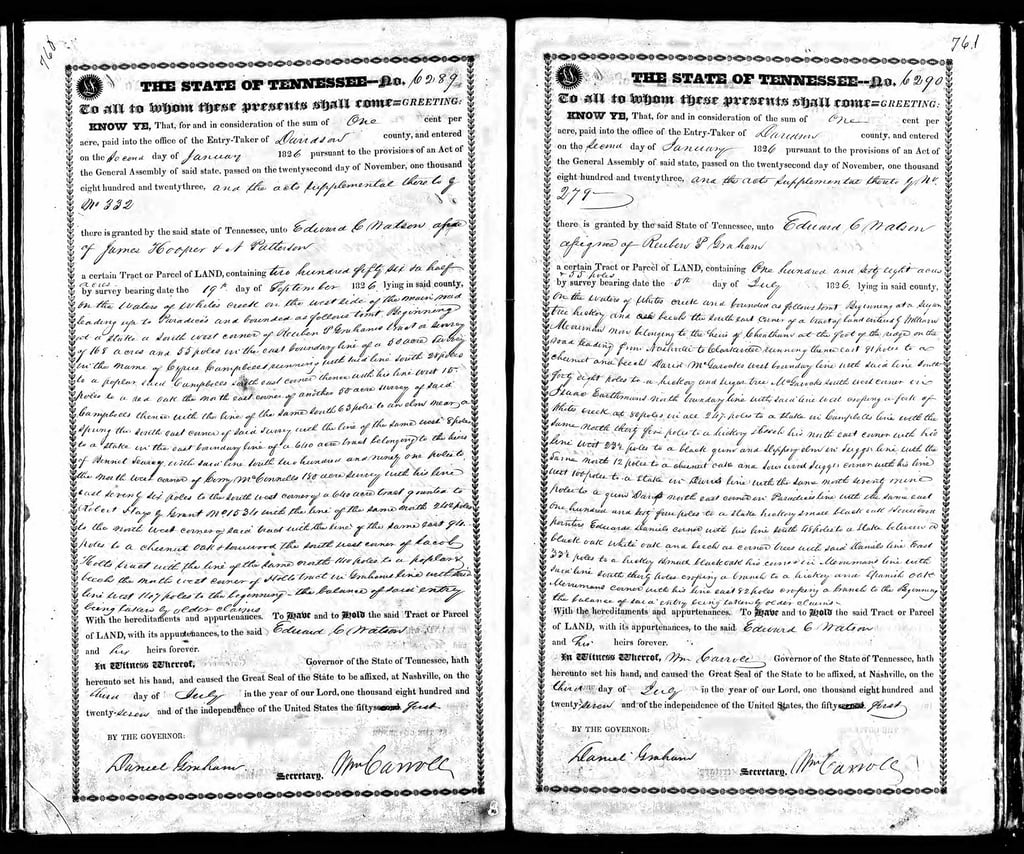 760
THE STATE OF TENNESSEE—No. 6289
To all to whom these presents shall come=GREETING:
KNOW YE, That, for and in consideration of the sum of One cent per
acre, paid into the office of the Entry-Taker of Davidson county, and entered
on the Second day of January 1826 pursuant to the provisions of an Act of
the General Assembly of said state, passed on the twentysecond day of November, one thousand
eight hundred and twentythree, and the acts supplemental thereto by
No 332
there is granted by the said state of Tennessee, unto Edward C Watson assee
of James Hooper & A Patterson
a certain Tract or Parcel of LAND, containing two hundred fifty six & a half
acres
by survey bearing date the 19th day of September 1826 lying in said county,
on the Waters of Whites creek on the west side of the main road
leading up to Paradices and bounded as follows towit Beginning
at a stake a south west corner of Reuben P Grahams tract a survey
of 168 acres and 55 poles in the east boundary line of a 50 acre survey
in the name of Cyrus Campbells running with his line south 28 poles
to a poplar said Campbells south east corner thence with his line west 10
poles to a red oak the north east corner of another 50 acre survey of said
Campbells thence with the line of the same south 63 poles to an elm near a
spring the south east corner of said survey with the line of the same west 8 poles
to a stake in the east boundary line of a 640 acre tract belonging to the heirs
of Bennet Searcy, with said line south two hundred and ninety one poles to
the north west corner of McConnells 150 acre survey with his line
east seventy six poles to the south west corner of a 640 acre tract granted to
Robert Hays by Grant No 1534 with the line of the same north 240 poles
to the north west corner of said tract with the line of the same east 94
poles to a chesnut oak & sourwood the south west corner of Jacob
Holts tract with the line of the same north 140 poles to a poplar &
beech the north west corner of Holts tract in Grahams line with said
line west 147 poles to the beginning - the balance of said entry
being taken by older claims
With the hereditaments and appurtenances. To Have and to Hold the said Tract or Parcel
of LAND, with its appurtenances, to the said Edward C Watson
and his heirs forever.
In Witness Whereof, Governor of the State of Tennessee, hath
hereunto set his hand, and caused the Great Seal of the State to be affixed, at Nashville, on the
third day of July in the year of our Lord, one thousand eight hundred and
twenty-seven and of the independence of the United States, the fifty first
BY THE GOVERNOR:
Daniel Graham Secretary. Wm Carroll
761
THE STATE OF TENNESSEE—No. 6290
To all to whom these presents shall come=GREETING:
KNOW YE, That, for and in consideration of the sum of One cent per
acre, paid into the office of the Entry-Taker of Davidson county, and entered
on the Second day of January 1826 pursuant to the provisions of an Act of
the General Assembly of said state, passed on the twentysecond day of November, one thousand
eight hundred and twentythree, and the acts supplemental thereto by No.
279
there is granted by the said State of Tennessee, unto Edward C Watson
assignee of Reuben P Graham
a certain Tract or Parcel of LAND, containing One hundred and sixty eight acres
& 55 poles
by survey bearing date the 5th day of July 1826 lying in said county,
on the Waters of Whites creek and bounded as follows towit Beginning at a sugar
tree hickory and beech the south east corner of a tract of land entered by William
Merriman now belonging to the heirs of Cheatham at the foot of the ridge on the
road leading from Nashville to Clarksville running thence east 91 poles to a
chesnut and beech David McGavocks west boundary line with said line south
forty eight poles to a hickory and sugar tree McGavocks south west corner in
Isaac Earthmans north boundary line with said line west crossing a fork of
Whites creek at 80 poles in all 247 poles to a stake in Campbells line with the
same north thirty five poles to a hickory & beech his north east corner with his
line west 23½ poles to a black gum and slippery elm in Suggs line with the
same north 12 poles to a chesnut oak and sourwood Suggs corner with his line
west 100 poles to a stake in Davis line with the same north seventy nine
poles to a gum Davis north east corner in Paradices line with the same east
one hundred and sixty four poles to a stake hickory small black oak & sourwood
pointers Edward Daniels corner with his line south 48 poles to a stake between a
black oak white oak and beech as corner trees with said Daniels line East
33½ poles to a hickory & small black oak his corner in Merrimans line with
said line south thirty poles crossing a branch to a hickory and Spanish oak
Merrimans corner with his line east 82 poles crossing a branch to the Beginning
the balance of said entry being taken by older claims
With the hereditaments and appurtenances. To Have and to Hold the said Tract or Parcel
of LAND, with its appurtenances, to the said Edward C Watson
and his heirs forever.
In Witness Whereof, Wm Carroll Governor of the State of Tennessee, hath
hereunto set his hand, and caused the Great Seal of the State to be affixed, at Nashville, on the
third day of July in the year of our Lord, one thousand eight hundred and
twenty-seven and of the independence of the United States, the fifty first
BY THE GOVERNOR:
Daniel Graham Secretary. Wm Carroll